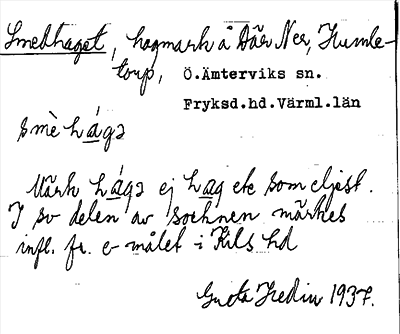 Smedhaget, hagmark å Där Ner, Humle-
torp, Ö.Ämterviks sn.
Fryksd.hd.Värml.län
smè hágə
Märk hágə ej hag etc som eljest.
I sv delen av socknen märkes
infl. fr. e-målet i Kils hd
Greta Hedin 1937.